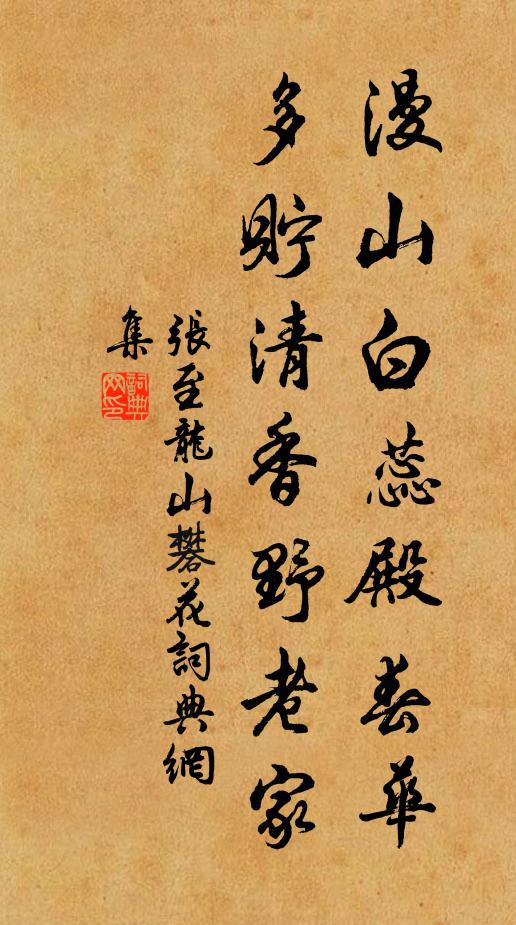 漫山白蕊殿春華
多貯清香野老家
張至龍山礬花詞典網
集
詞典
網印